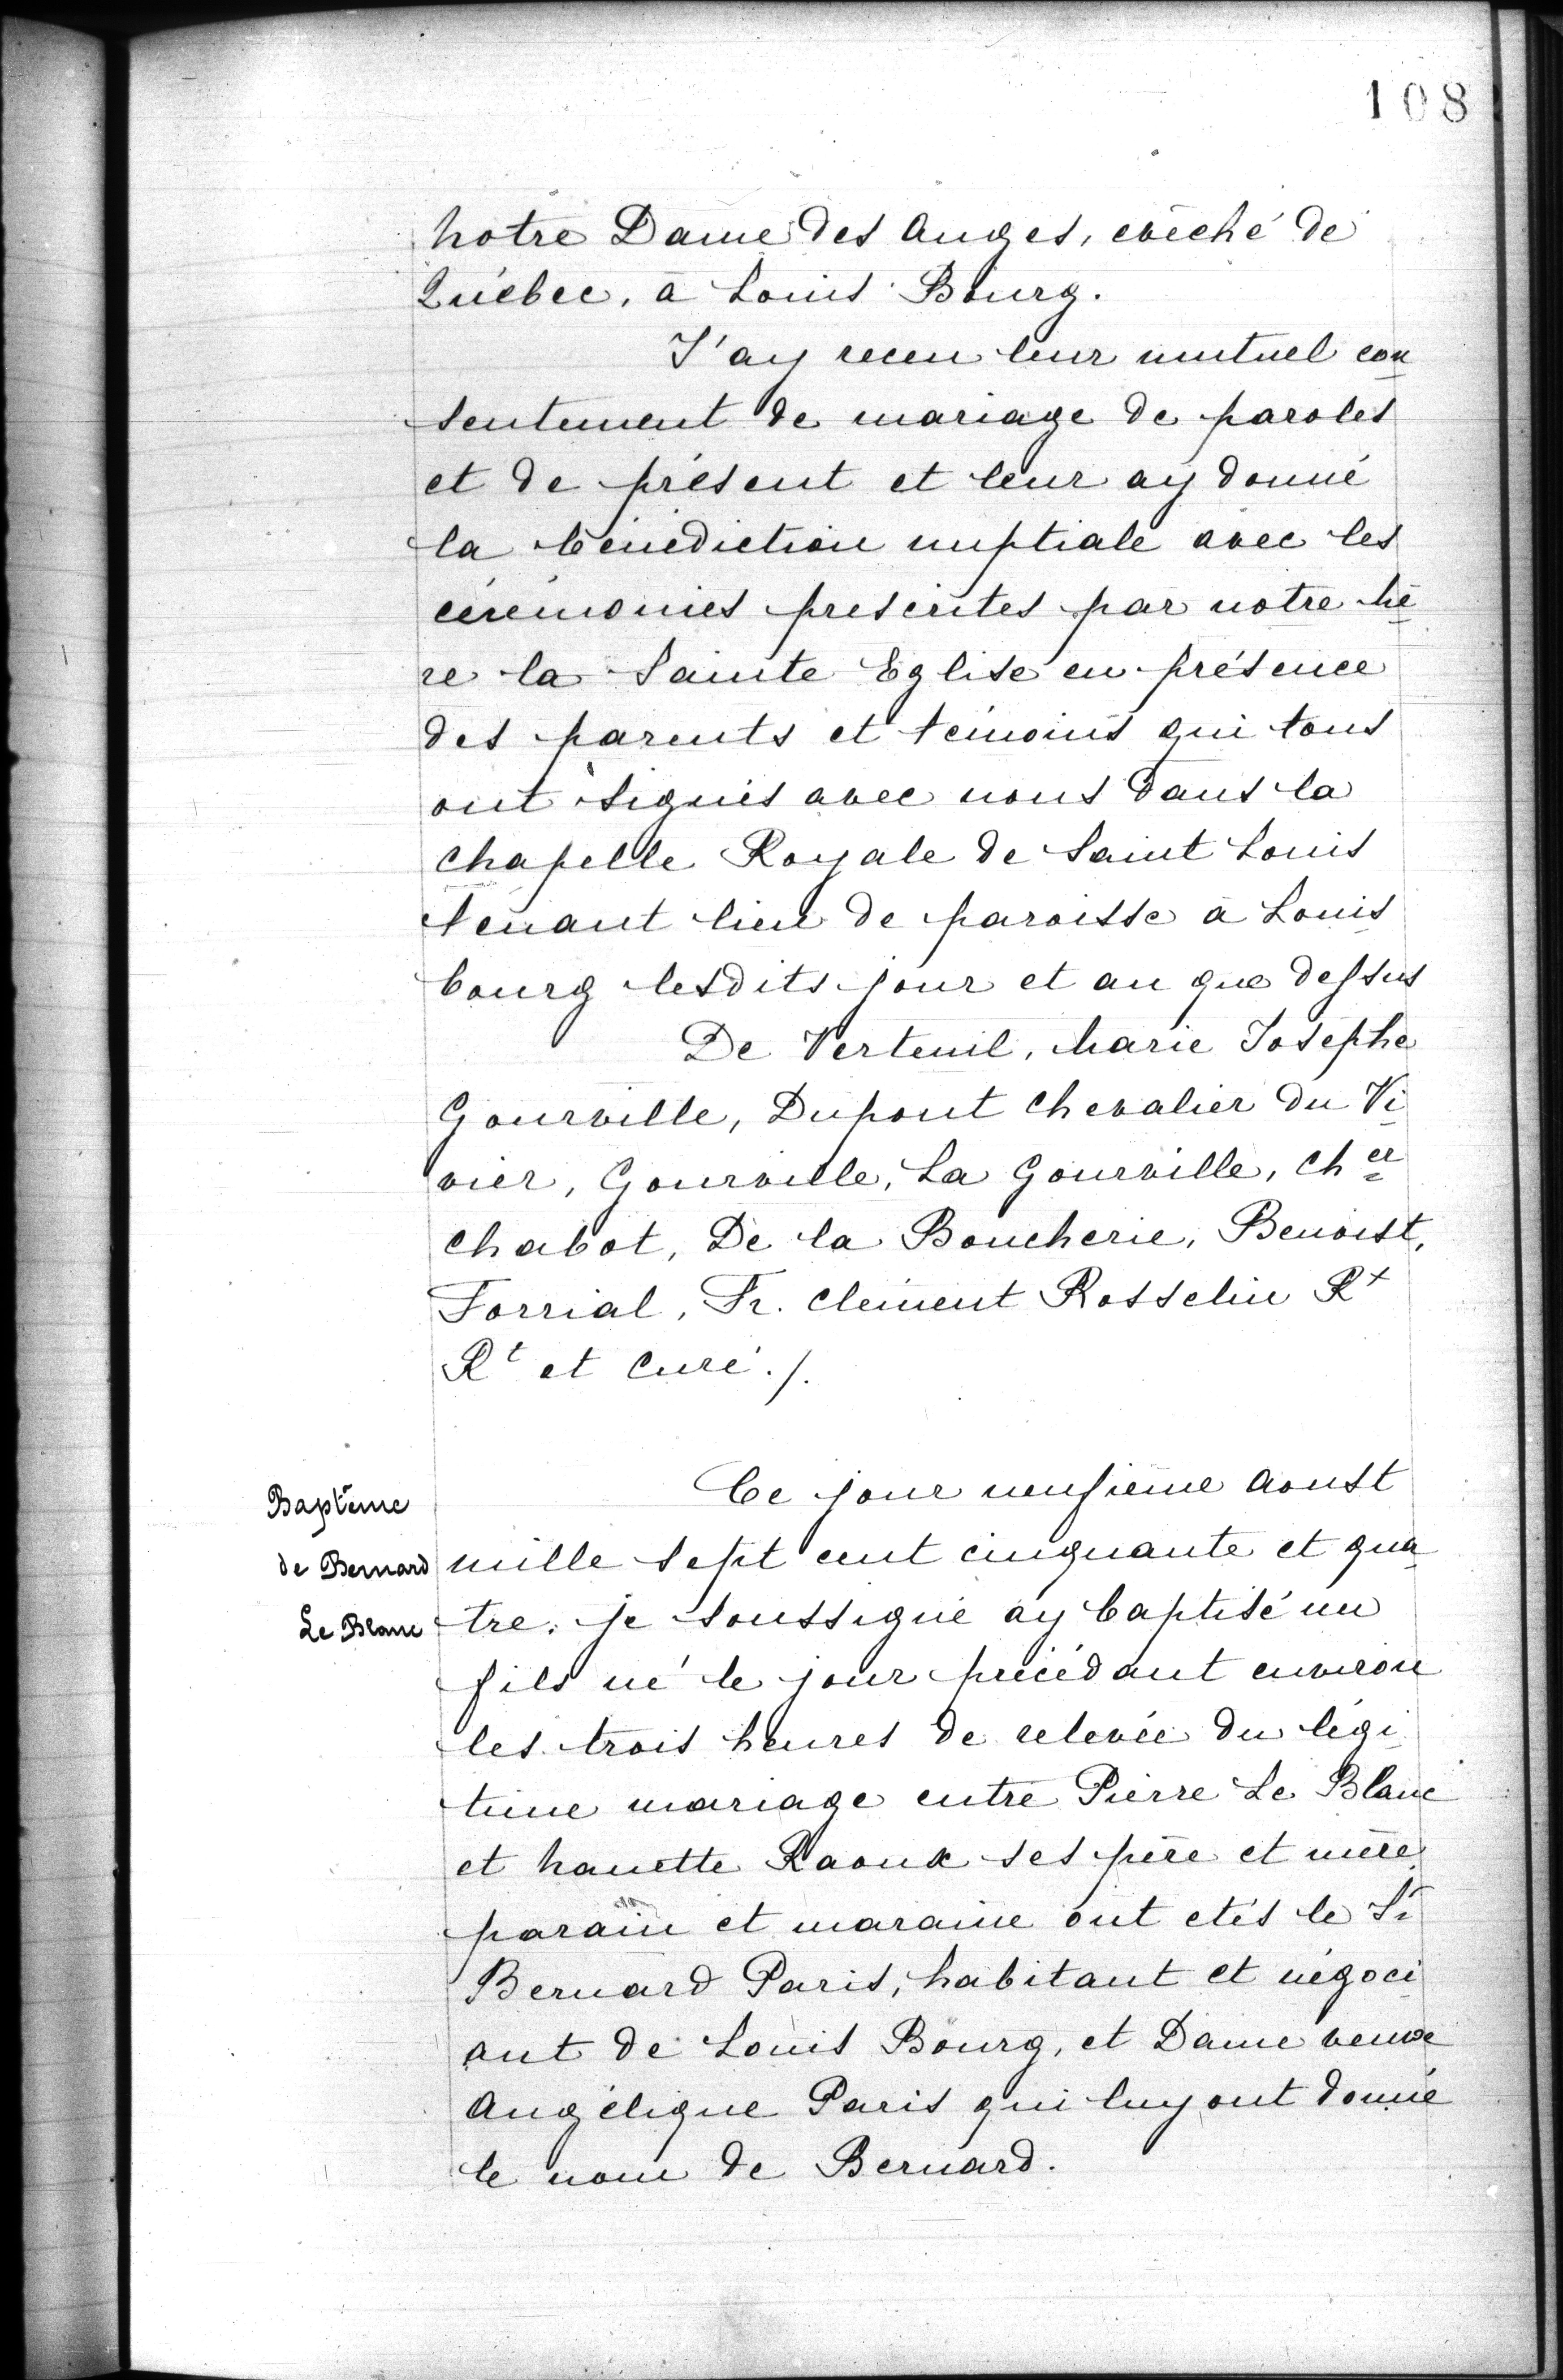 108
Notre Dame des Anges, evêché de
Québec, à Louis Bourg.
J'ay receu leur mutuel con
sentement de mariage de paroles
et de présent et leur ay donné
la bénédiction nuptiale avec les
cérémonies prescrites par notre Mè
re la Sainte Eglise en présence
des parents et témoins qui tous
ont signés avec nous dans la
chapelle Royale de Saint Louis
tenant lieu de paroisse à Louis
bourg lesdits jour et an que dessus
De Verteuil, Marie Josephe
Gourville, Dupont Chevalier du Vi
vier, Gourville, La Gourville, Cher
Chabot, De la Boucherie, Benoist,
Forrial, Fr. Clément Rosselin Rt
Rt et Curé./.
Baptême
de Bernard
Le Blanc
Ce jour neufieme Aoust
mille sept cent cinquante et qua
tre. je soussigné ay baptisé un
fils né le jour précédant environ
les trois heures de relevée du légi
time mariage entre Pierre Le Blanc
et Nanette Raoux ses père et mère
parain et maraine ont etés le Sr
Bernard Paris, habitant et négoci
ant de Louis Bourg, et Dame veuve
Angélique Paris qui luy ont donné
le nom de Bernard.